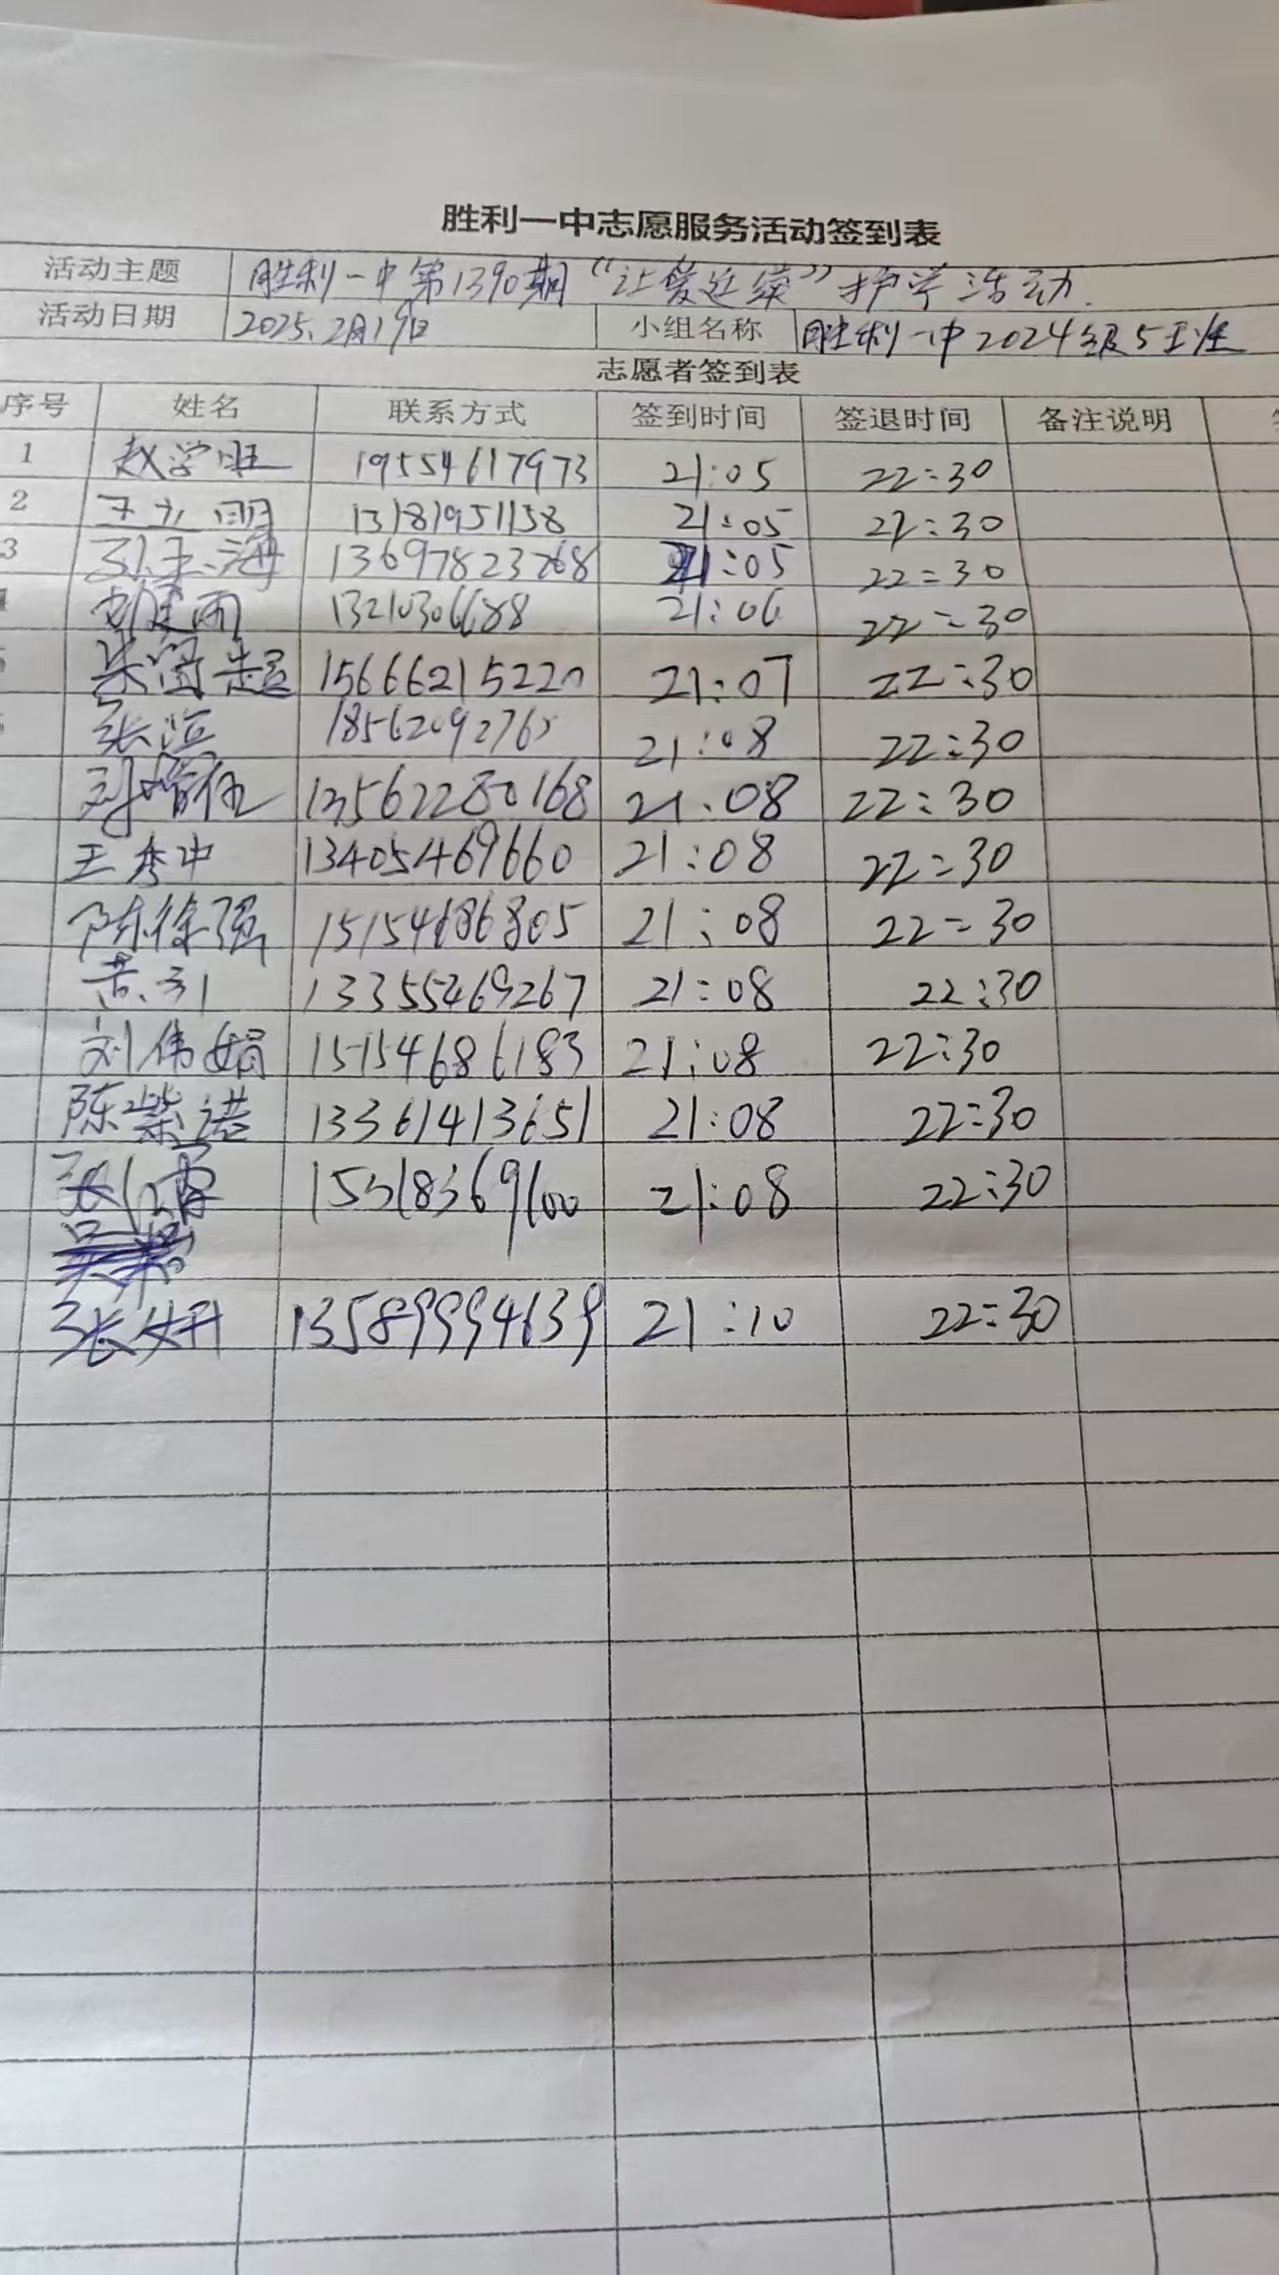 胜利一中志愿服务活动签到表
活动主题 胜利一中第1390期“让爱延续”护学活动.
活动日期 2025.2月19日 小组名称 胜利一中2024级5班
志愿者签到表
序号 姓名 联系方式 签到时间 签退时间 备注说明
1 赵学旺 19554617973 21:05 22:30
2 13181951158 21:05 22:30
3 13697823768 21:05 22:30
13210306688 21:06 22:30
15666215220 21:07 22:30
21:08 22:30
13562280168 21:08 22:30
王秀中 13405469660 21:08 22:30
陈徐强 15154686805 21:08 22:30
13355469267 21:08 22:30
刘伟娟 15154686183 21:08 22:30
陈紫诺 13361413651 21:08 22:30
15318369100 21:08 22:30
张妍 13589994639 21:10 22:30